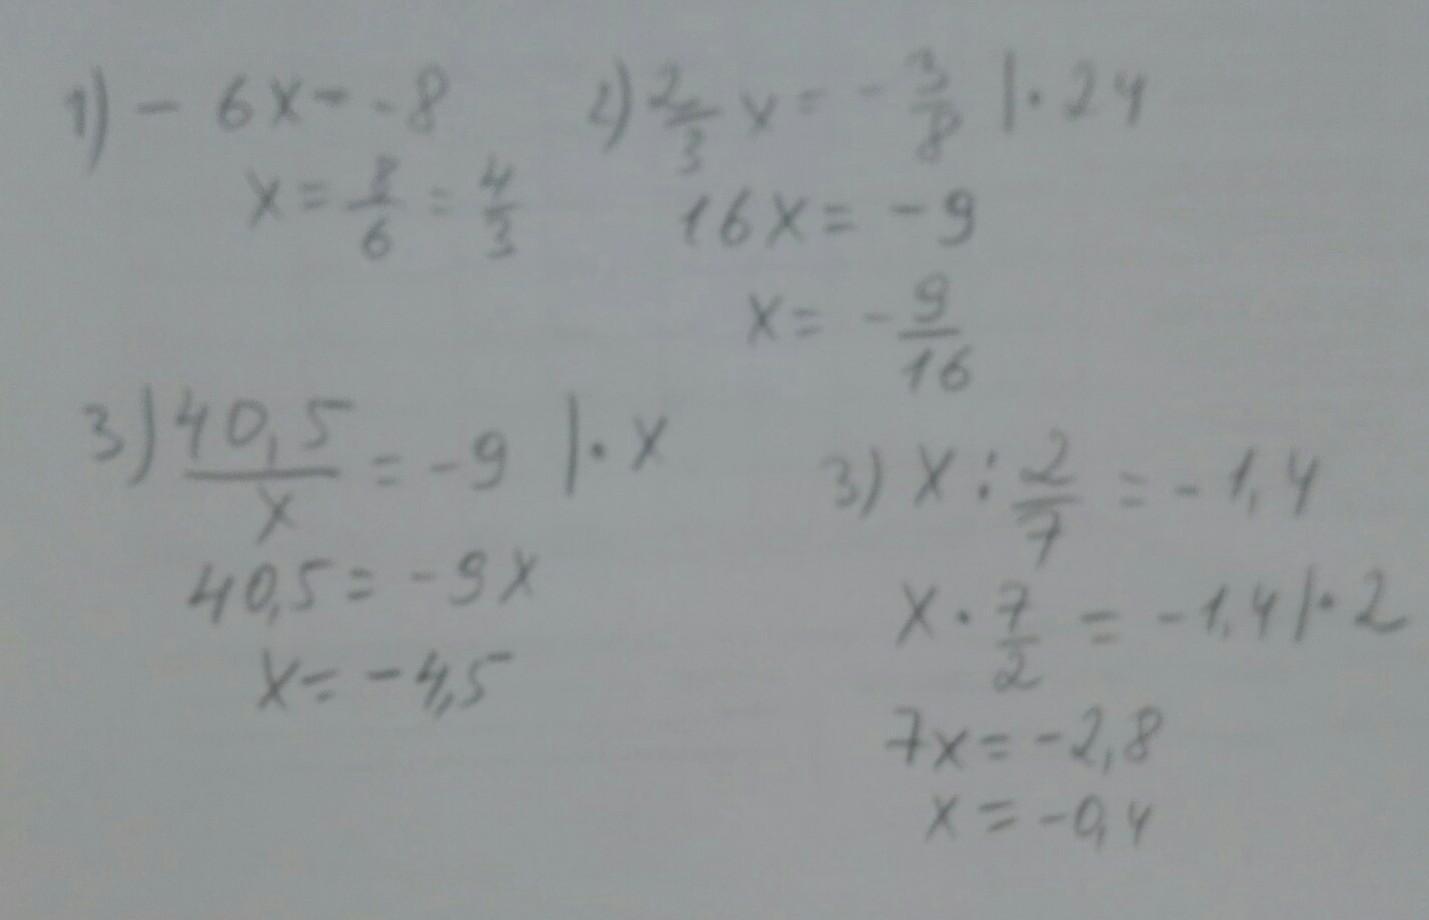 1) - 6x = -8
x = 8/6 = 4/3
2) 2/3 x = - 3/8 | · 24
16x = -9
x = - 9/16
3) 40,5/x = -9 | · x
40,5 = -9x
x = -4,5
3) x : 2/7 = -1,4
x · 7/2 = -1,4 | · 2
7x = -2,8
x = -0,4